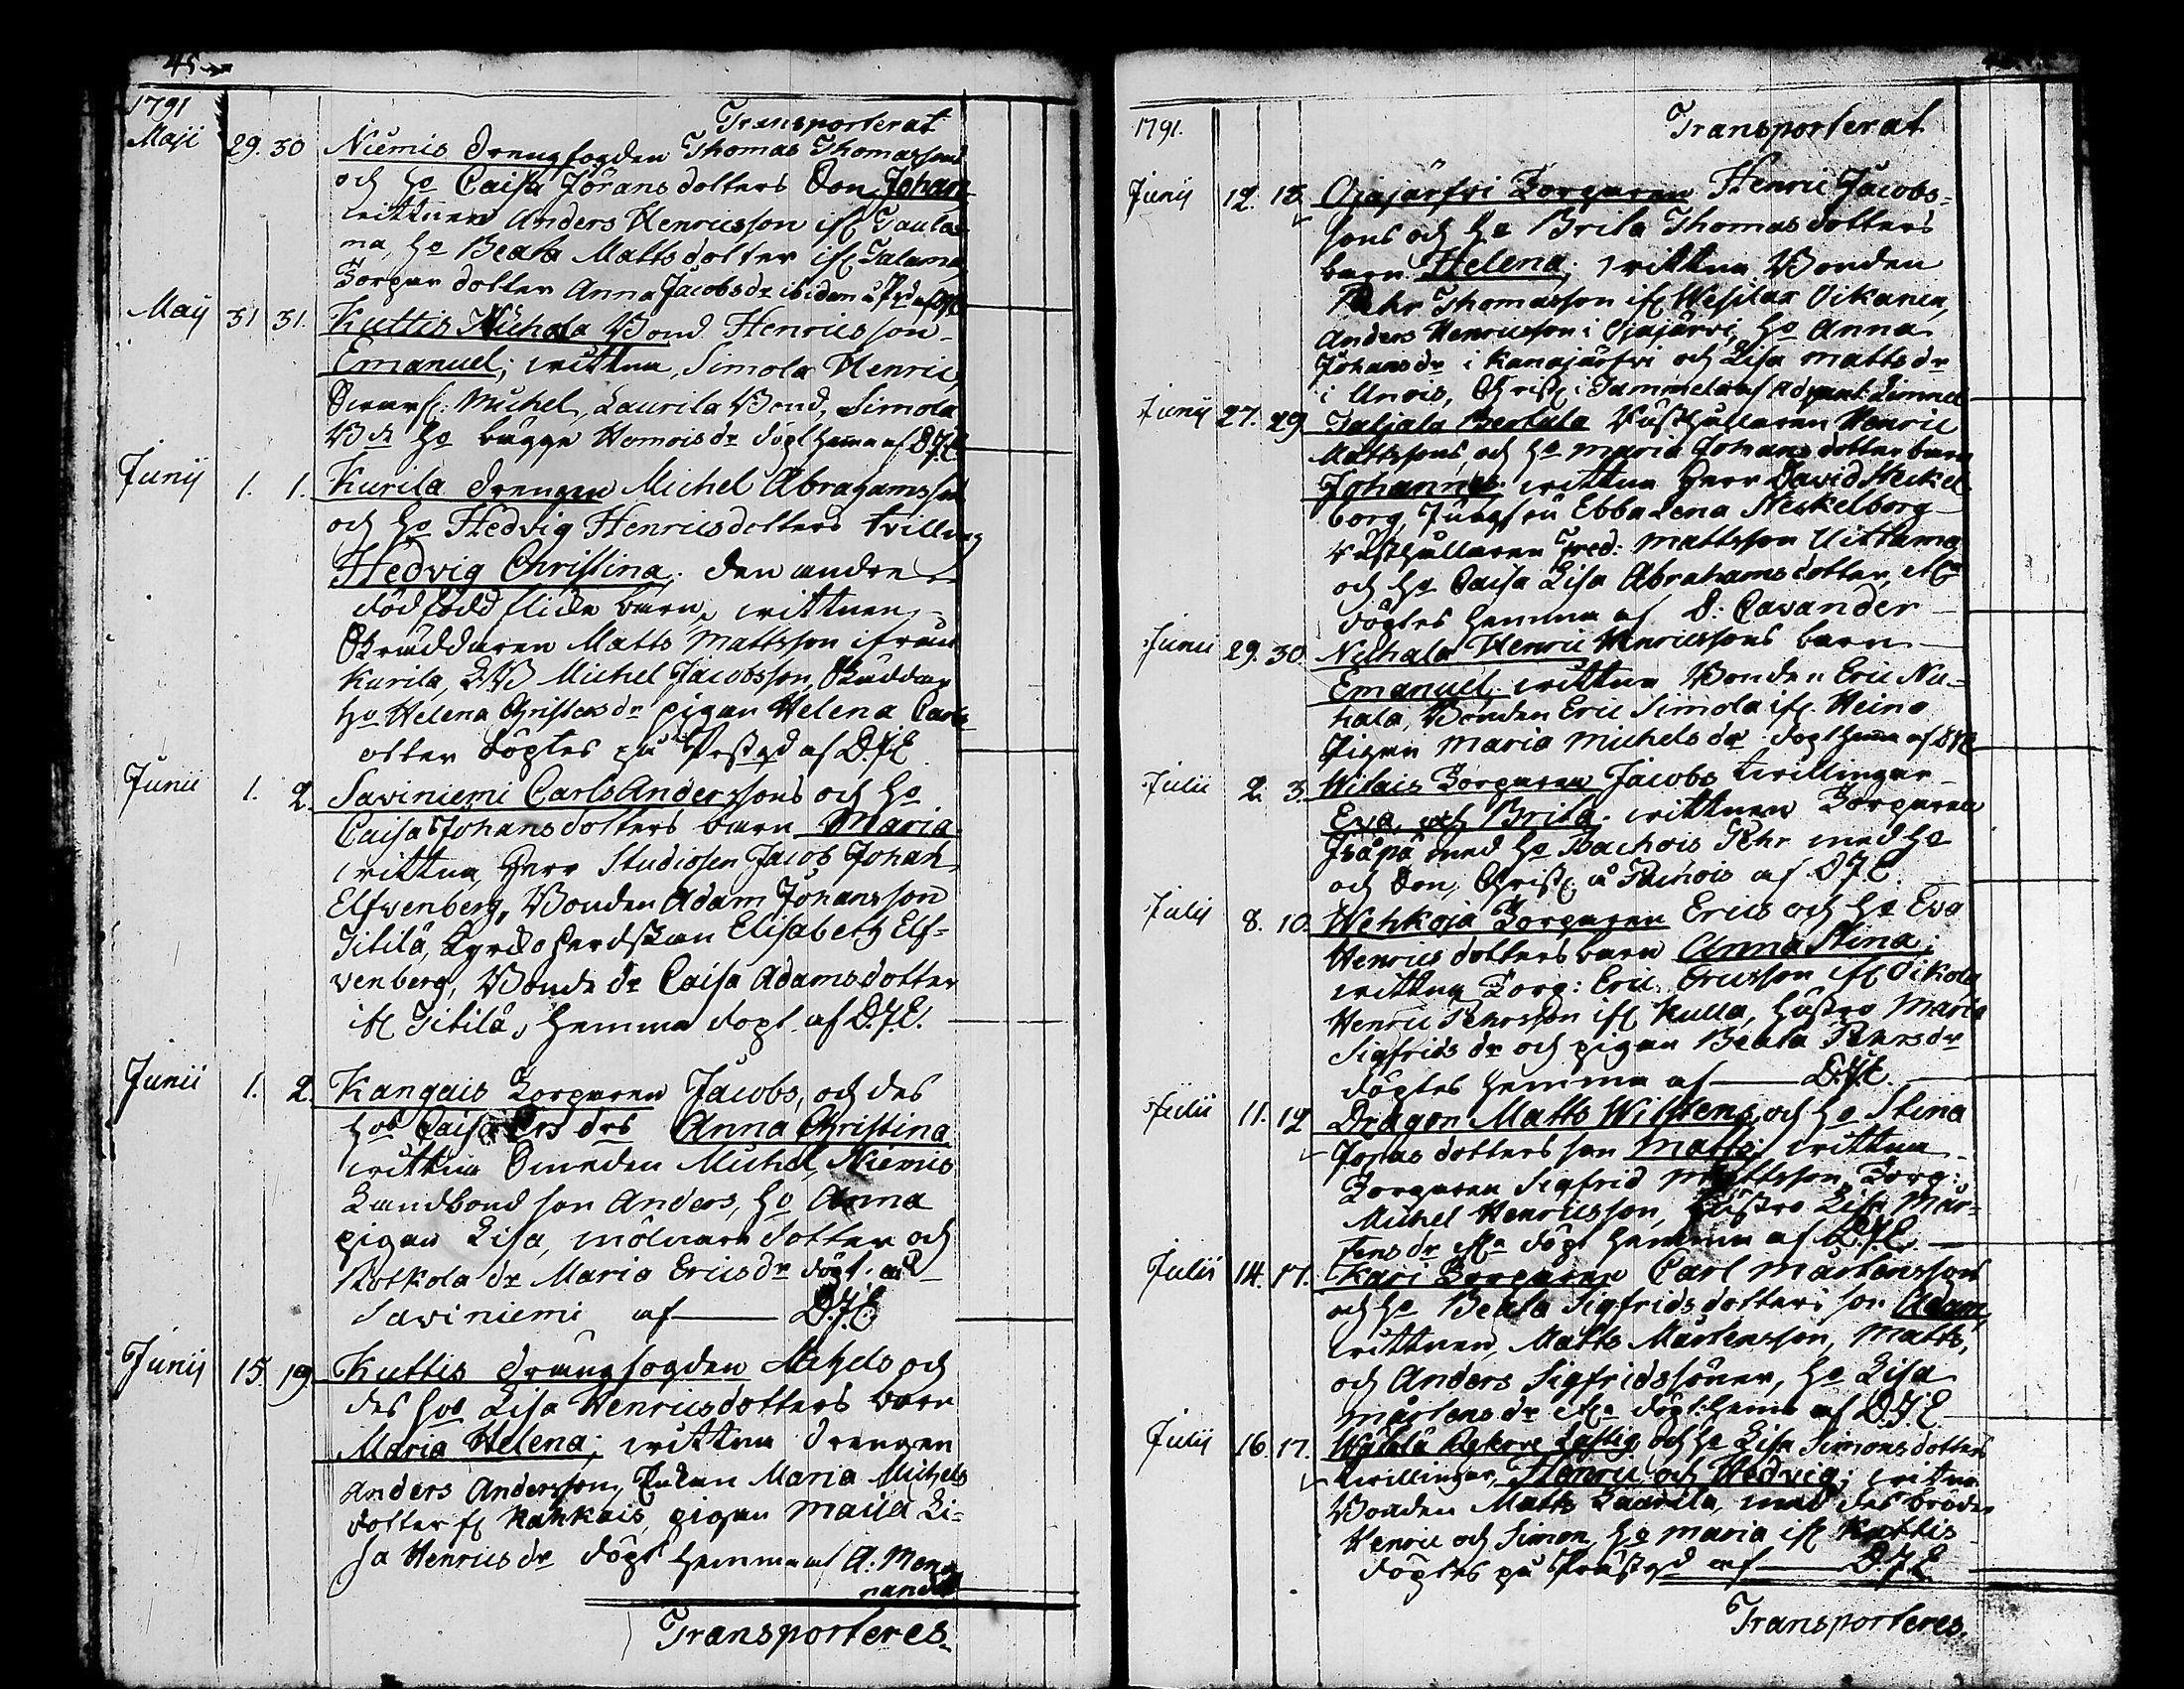 45
1791
Transporterat
Maji 29. 30 Niemis drengfogden Thomas Thomassons
och ho Caisa Jörans dotters Son Johan
wittnen Anders Henricsson ifr Taula-
ma, ho Beata Matts dotter ifr Talama
Torpar dotter Anna Jacobs dr ibidem
Maij 31 31. Kuttis Nuhala Bond Henricsson
Emanuel; wittna, Simola Henric,
Michel, Laurila Bond, Simola
ho dögt hema af D.J.E.
Junij 1. 1. Kurila drengen Michel Abrahamsson
och ho Hedvig Henricsdotters tvilling
Hedvig Christina. den andre
dödfödd flicke barn, wittnen
Skräddaren Matts Mattsson ifrån
Kurila, Michel Jacobsson, Skräddar
ho Helena Christers dr pigan Helena Carls
otter döptes på Prestgd af D.J.E.
Junii 1. 2. Saviniemi Carls Anderssons och ho
Caisa Johans dotters barn Maria.
wittna, Herr Studiosen Jacob Johan
Elfvenberg, Bonden Adam Johansson
Jitilä, Elisabeth Elf=
venberg, Bonde dr Caisa Adamsdotter
ifr Jitilä, hemma döpt af D.J.E.
Junii 1. 2. Kangais Torparen Jacobs, och des
hos Caisa Ers drs Anna Christina
wittna Smeden Michel, Niemis
Landbond son Anders, ho Anna
pigan Lisa, mölnare dotter och
Kotkola dr Maria Erics dr döpt. at
Saviniemi af D.J.E.
Junij 15. 19. Kuttis drengfogden Michels och
des hos Lisa Henricsdotters barn
Maria Helena; wittna drengen
Anders Andersson, Enkan Maria Michels
dotter fr Kahkais, pigan Maija Li=
sa Henrics dr döpt hemma af A. Mena
nander
Transporteres.
1791.
Transporterat
Junij 12. 13. Ojajärfvi Torparen Henric Jacobs=
sons och ho Brita Thomas dotters
barn Helena; wittna Bonden
Pehr Thomasson ifr Oikanen,
Anders Henricsson i Ojajärvi, ho Anna
Johans dr i Kanajärfvi och Lisa Matts dr
i Unois, Christ. i Tammela af Adjunct Limnel
Junij 27. 29 Taljala Bertula Rusthållaren Henric
Mattssons, och ho Maria Johans dotter barn
Johannes wittna Herr David Heckel-
borg, Jungfru Ebba Lena Neskelborg
rusthållaren Fred: Mattsson Uittamo
och ho Caisa Lisa Abrahams dotter
döptes hemma af D: Cavander
Junii 29. 30. Nuhala Henric Henricssons barn
Emanuel. wittna Bonden Eric Nu=
hala, Bonden Eric Simola ifr Heino
Pigan Maria Michels dr döpt hema af DJE
Julii 2. 3. Wilais Torparen Jacobs twillingar
Eva och Brita. wittnen Torparen
med ho Bachois Pehr med ho
och Son, Christ. å af DJE.
Julij 8. 10. Wehkoja Torparen Erics och ho Eva
Henricsdotters barn Anna Stina;
wittna Torp: Eric Ericsson ifr Oikola
Henric Pehrsson ifr Kulla, hustro Maria
Sigfrids dr och pigan Beata Pehrs dr
döptes hemma af D.J.E.
Julii 11. 12 Dragon Matts Wilstens, och ho Stina
Johansdotters son Matts; wittna
Torparen Sigfrid Mattsson, Torp:
Michel Henricsson, Hustro Lisa Mår=
tens dr döpt hemma af D.J.E.
Julii 14. 17. Kari Torparen Carl Mårtenssons
och ho Beata Sigfridsdotters son Adam,
wittnen, Matts Mårtensson, Matts,
och Anders Sigfridssöner, ho Lisa
Mårtens dr döpt hema af D.J.E
Julij 16. 17. och ho Lisa Simonsdotters
twillingar, Henric och Hedvig; witna
Bonden Matts Laurila, med des broder
Henric och Simon, ho Maria ifr Kuttis
döptes på Prästgd af D.J.E
Transporteres.